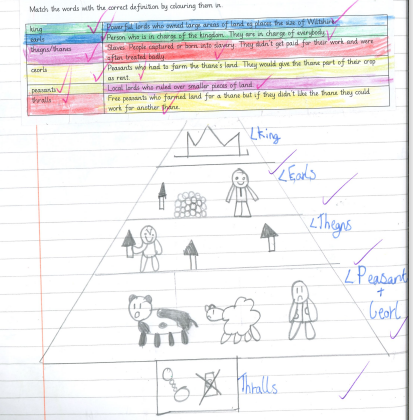 Match the words with the correct definition by colouring them in.
king
Powerful lords who owned large areas of land eg places the size of Wiltshire
earls
Person who is in charge of the kingdom. They are in charge of everybody
thegns/thanes
Slaves. People captured or born into slavery. They didn't get paid for their work and were
often treated badly
ceorls
Peasants who had to farm the thane's land. They would give the thane part of their crop
as rent.
peasants
Local lords who ruled over smaller pieces of land
thralls
Free peasants who farmed land for a thane but if they didn't like the thane they could
work for another thane.
King
Earls
Thegns
Peasant
+
Ceorl
Thralls